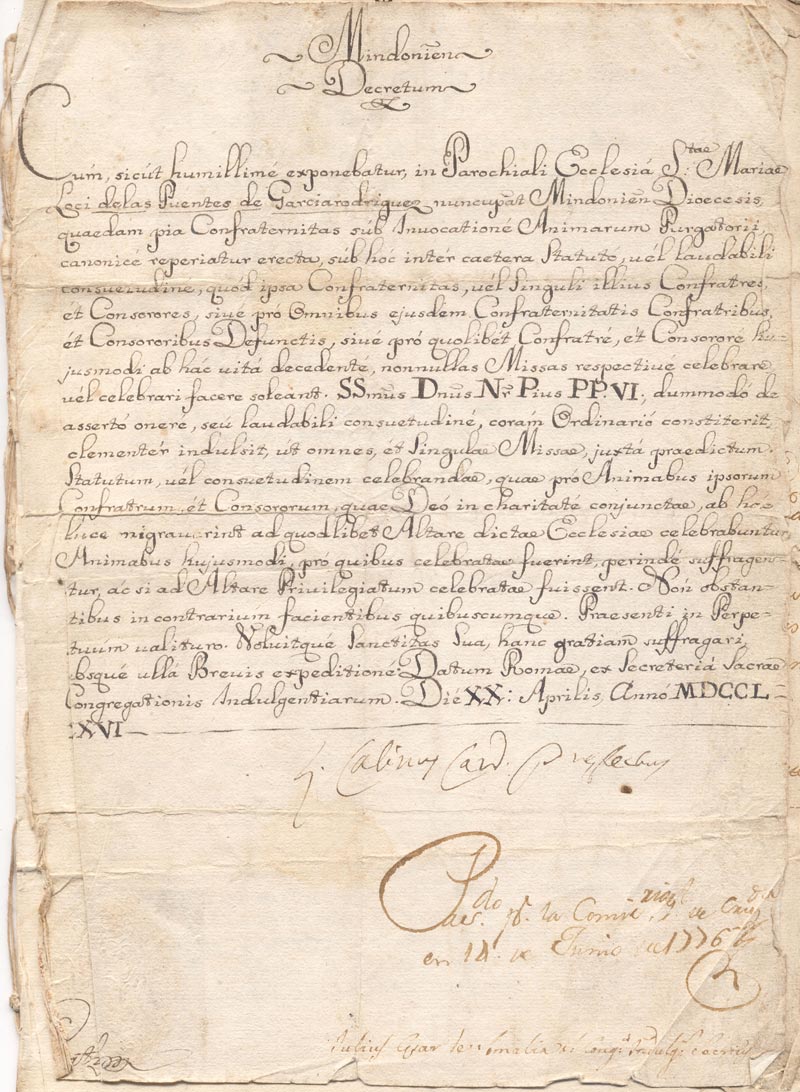 Mindonien
Decretum
Cum, sicút humillimé exponebatur, in Parochiali Ecclesiá S.tae Mariae
Loci delas Puentes de Garciarodriguez nuncupat Mindonien Dioecesis,
quaedam pia Confraternitas súb Invocationé Animarum Purgatorii
canonicé reperiatur erecta, súb hóc intér caetera Statutó, uél laudabili
consuetudine, quód ipsa Confraternitas, uél Singuli illius Confratres,
et Consorores, siué pró Omnibus ejusdem Confraternitatis Confratribus,
ét Consororibus Defunctis, siué pró quolibét Confratré, ét Consorore hu-
jusmodi ab hác uitá decedenté, nonnullas Missas respectiué celebrare,
uél celebrari facere soleant. SSmus Dnus Nr Pius PP. VI., dummodó de
assertó onere, seú laudabili consuetudiné, corám Ordinarió constiterit,
clementér indulsit, út omnes, ét Singulae Missae, juxtá praedictum
Statutum, uél consuetudinem celebrandae, quae pró Animabus ipsorum
Confratrum, ét Consororum, quae Deó in charitaté conjunctae, ab hác
luce migrauerint ad quodlibet Altare dictae Ecclesiae celebrabuntur,
Animabus hujusmodi, pró quibus celebratae fuerint, perindé suffragen-
tur, ác si ad Altare Privilegiatum celebratae fuissent. Nón obstan-
tibus in contrarium facientibus quibuscumque. Praesenti in Perpe-
tuum ualituro. Voluitqué Sanctitas Sua, hanc gratiam suffragari,
absqué ullá Breuis expeditioné. Datum Romae, ex Secreteriá Sacrae
Congregationis Indulgentiarum. Dié XX: Aprilis Annó MDCCL-
XXVI
Calinus Card. Praefectus
Pas.do pr. la Comis de Cruz.da
en 14 de Junio de 1776
Julius Cesar de Somalia